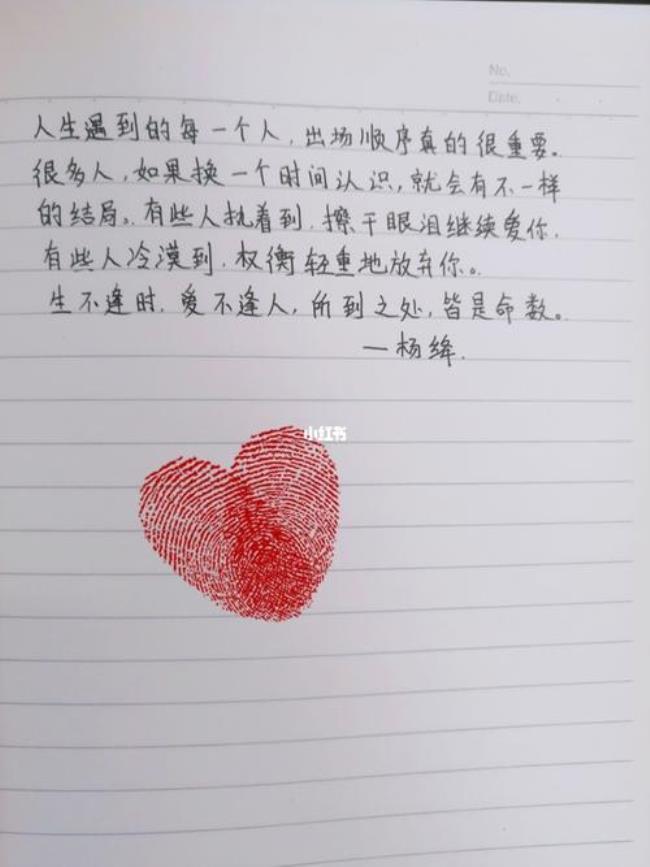 No.
Date.
人生遇到的每一个人，出场顺序真的很重要。
很多人，如果换一个时间认识，就会有不一样
的结局。有些人执着到，擦干眼泪继续爱你，
有些人冷漠到，权衡轻重地放弃你。
生不逢时，爱不逢人，所到之处，皆是命数。
一杨绛.
小红书